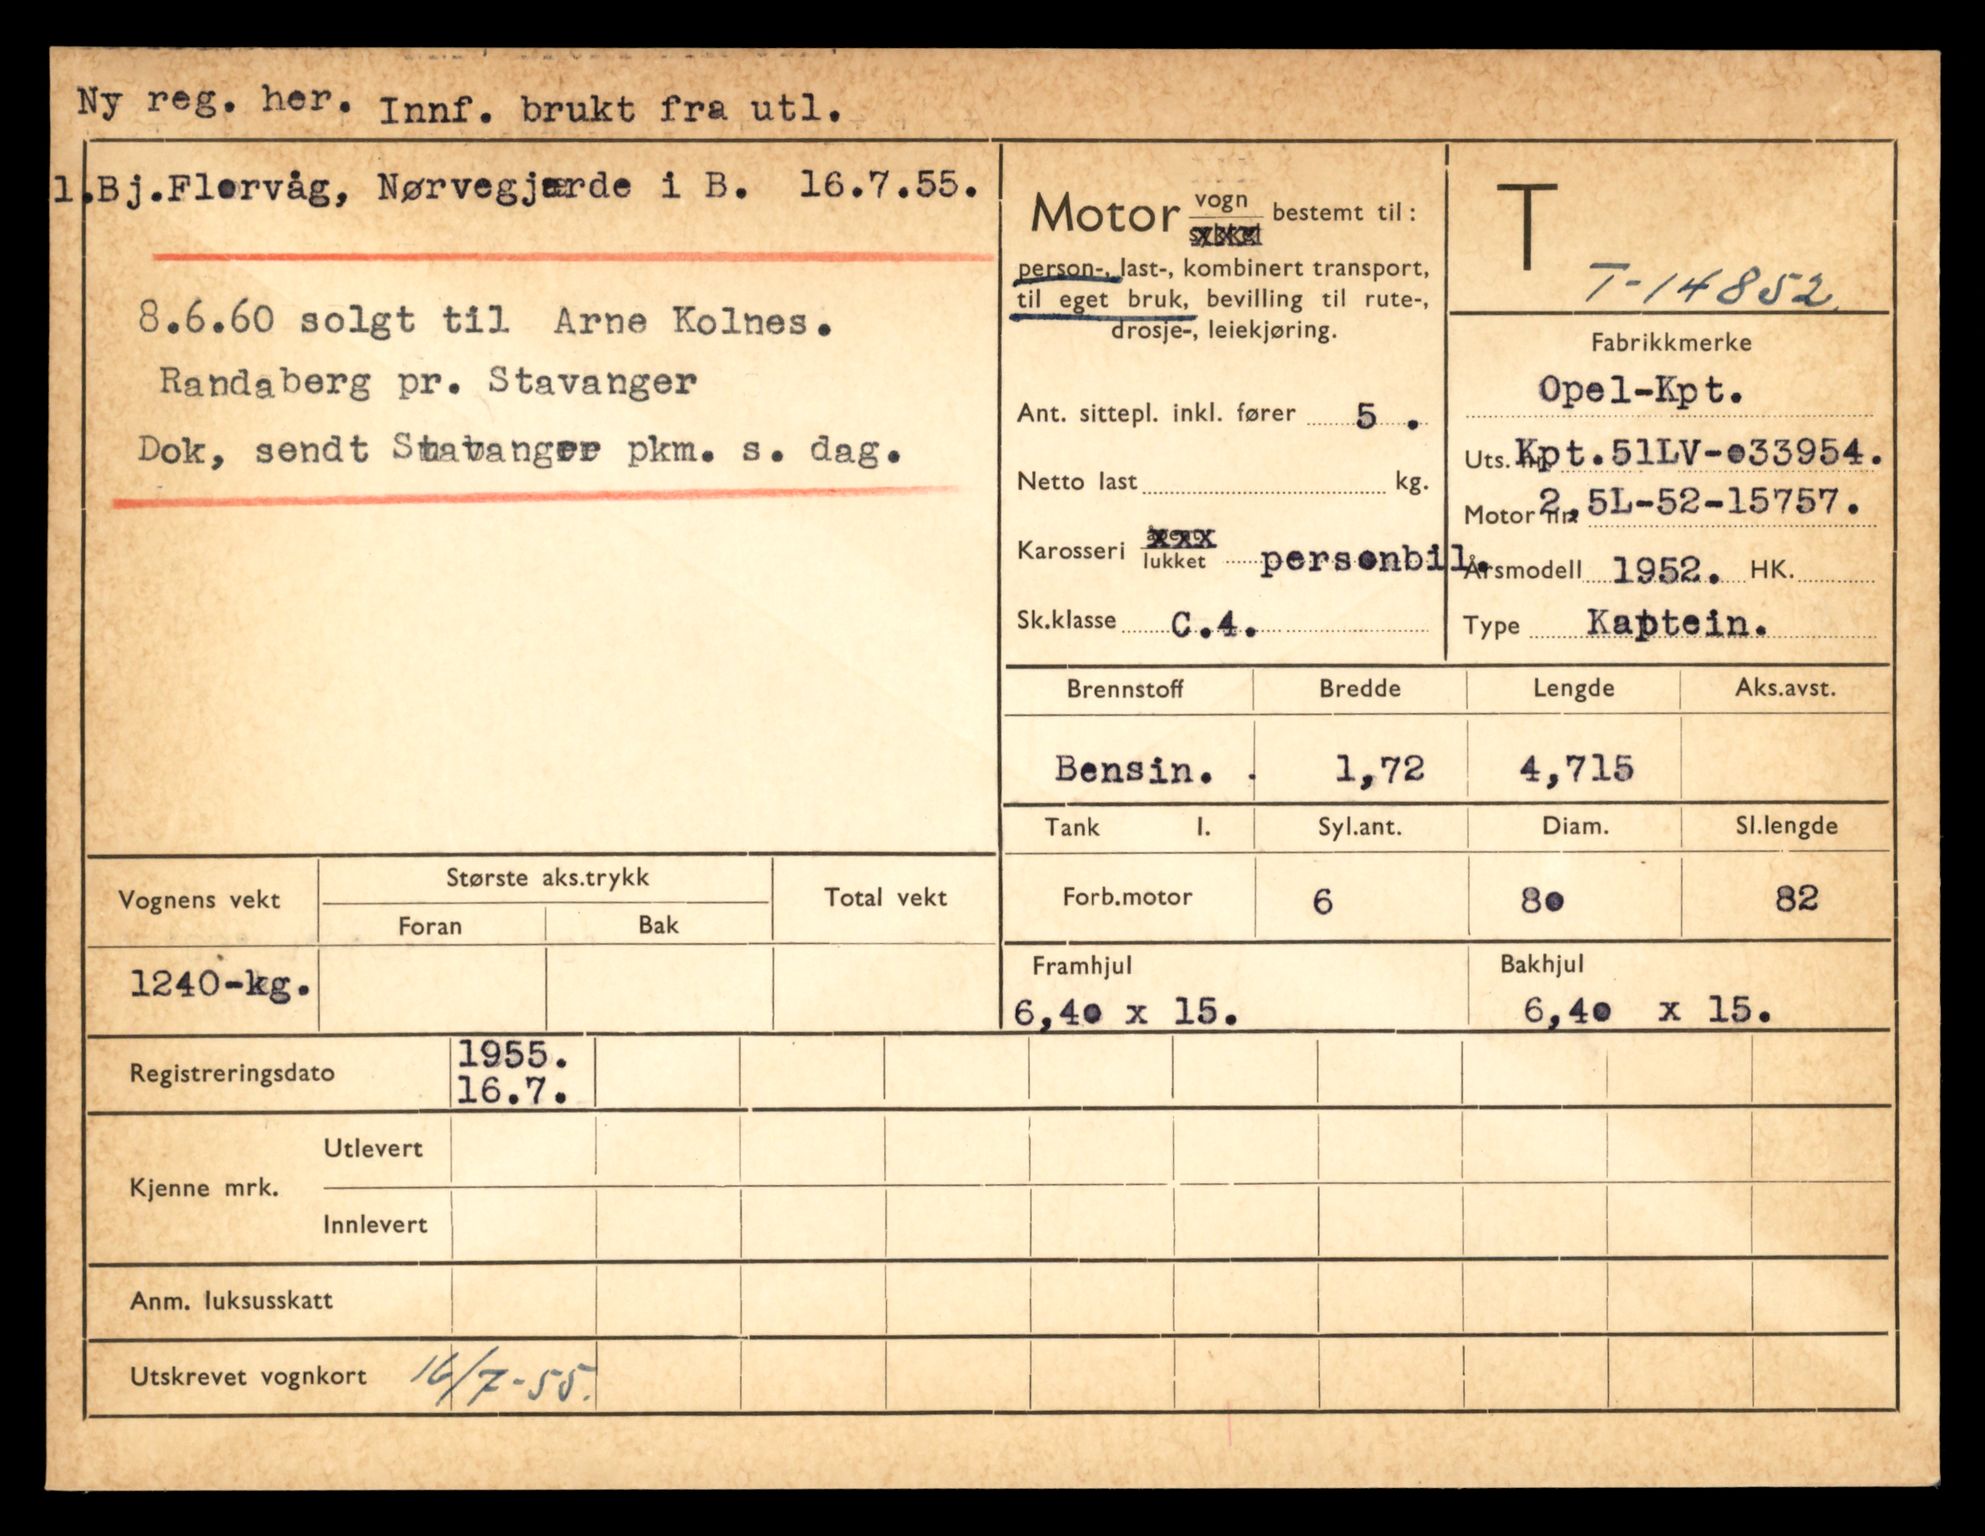 Ny reg. her. Innf. brukt fra utl.
1.Bj.Flørvåg, Nørvegjærde i B. 16.7.55.
8.6.60 solgt til Arne Kolnes.
Randaberg pr. Stavanger
Dok, sendt Stavanger pkm. s. dag.
Motor vogn bestemt til:
person-, last-, kombinert transport,
til eget bruk, bevilling til rute-,
drosje-, leiekjøring.
Ant. sittepl. inkl. fører 5 .
Netto last kg.
Karosseri lukket personbil.
Sk.klasse C.4.
T
T-14852.
Fabrikkmerke
Opel-Kpt.
Uts. nr. Kpt.51LV-033954.
Motor nr. 2,5L-52-15757.
Årsmodell 1952. HK.
Type Kaptein.
Brennstoff Bredde Lengde Aks.avst.
Bensin. . 1,72 4,715
Tank l. Syl.ant. Diam. Sl.lengde
Forb.motor 6 80 82
Framhjul Bakhjul
6,40 x 15. 6,40 x 15.
Vognens vekt Største aks.trykk Total vekt
Foran Bak
1240-kg.
Registreringsdato 1955.
16.7.
Kjenne mrk. Utlevert
Innlevert
Anm. luksusskatt
Utskrevet vognkort 16/7-55.